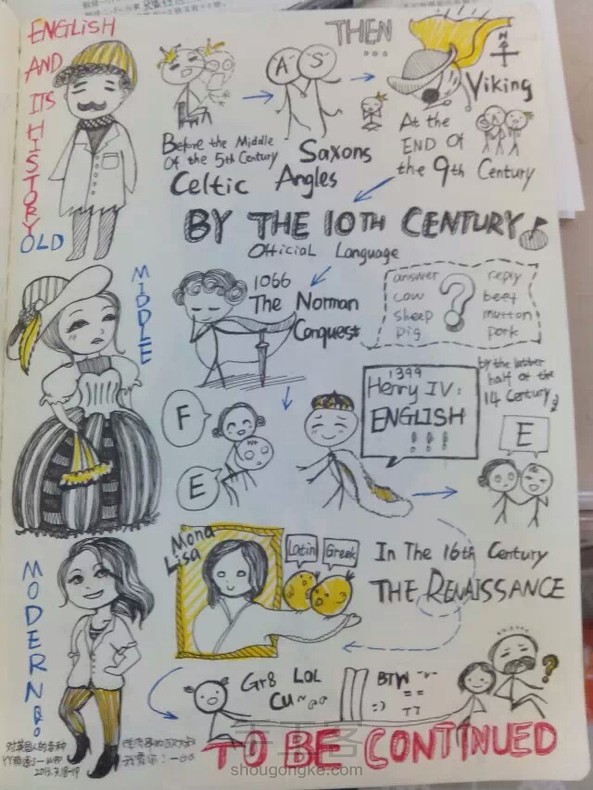 ENGLISH
AND
ITS
HISTORY
OLD
THEN
...
A S
N
Viking
Before the Middle
Of the 5th Century
Celtic
Saxons
Angles
At the
END Of
the 9th Century
BY THE 10TH CENTURY
Official Language
MIDDLE
1066
The Norman
Conquest
answer reply
cow beef
sheep mutton
pig pork
?
F
E
1399
Henry IV:
ENGLISH
!!!
by the latter
half of the
14 Century
E
MODERN
Mona
Lisa
Latin Greek
In The 16th Century
THE RENAISSANCE
Gr8 LOL
CU~
BTW
=)
TT
?
TO BE CONTINUED
2013.7.18-19
shougongke.com